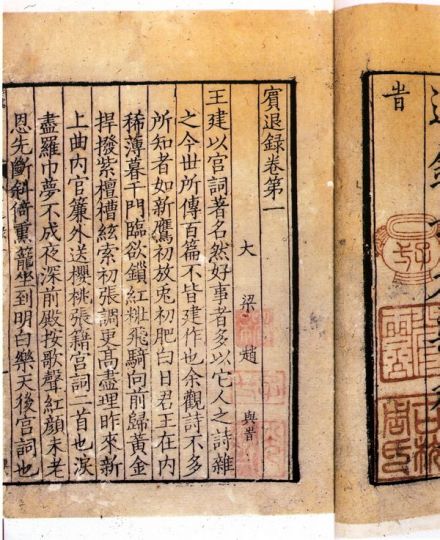 旹
賓退錄卷第一
大梁趙 與旹
王建以宮詞著名然好事者多以它人之詩雜
之今世所傳百篇不皆建作也余觀詩不多
所知者如新鷹初放兔初肥白日君王在內
稀薄暮千門臨欲鎖紅粧飛騎向前歸黃金
捍撥紫檀槽絃索初張調更髙盡理昨來新
上曲內官簾外送櫻桃張籍宮詞二首也淚
盡羅巾夢不成夜深前殿按歌聲紅顏未老
恩先斷斜倚熏籠坐到明白樂天後宮詞也